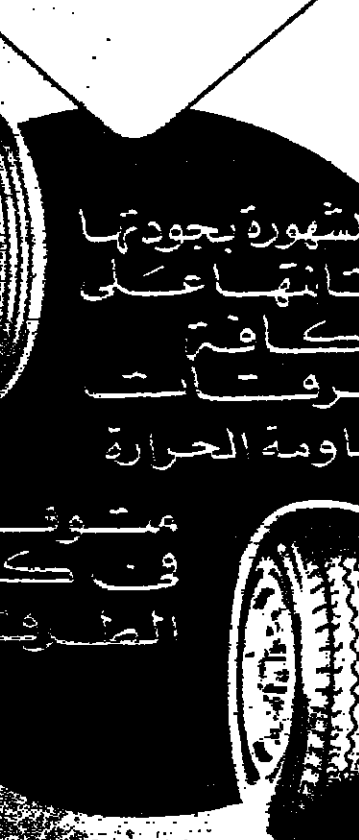 شهورة بجودتها
تانتها على
كافة
رقات
اومة الحرارة
متوفـ
في كـ
الطرقـ